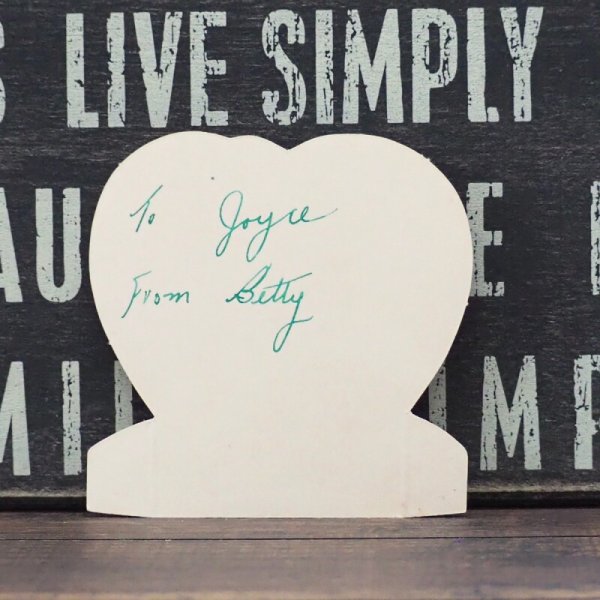 S LIVE SIMPLY
To Joyce
From Betty
AU E
MI IMP